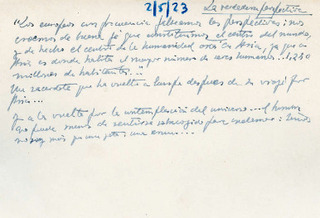 2/5/23
La verdadera perspectiva
"Los europeos con frecuencia falseamos las perspectivas; nos
creemos de buena fe que constituimos el centro del mundo,
y de hecho el centro de la humanidad está en Asia, ya que en
Asia es donde habita el mayor número de seres humanos... 1,250
millones de habitantes..."
Un sacerdote que ha vuelto a Europa después de su viaje por
Asia...
Ya a la vuelta por la contemplación del universo... el hombre
que puede menos de sentirse sobrecogido para exclamar:
no soy más que una gota